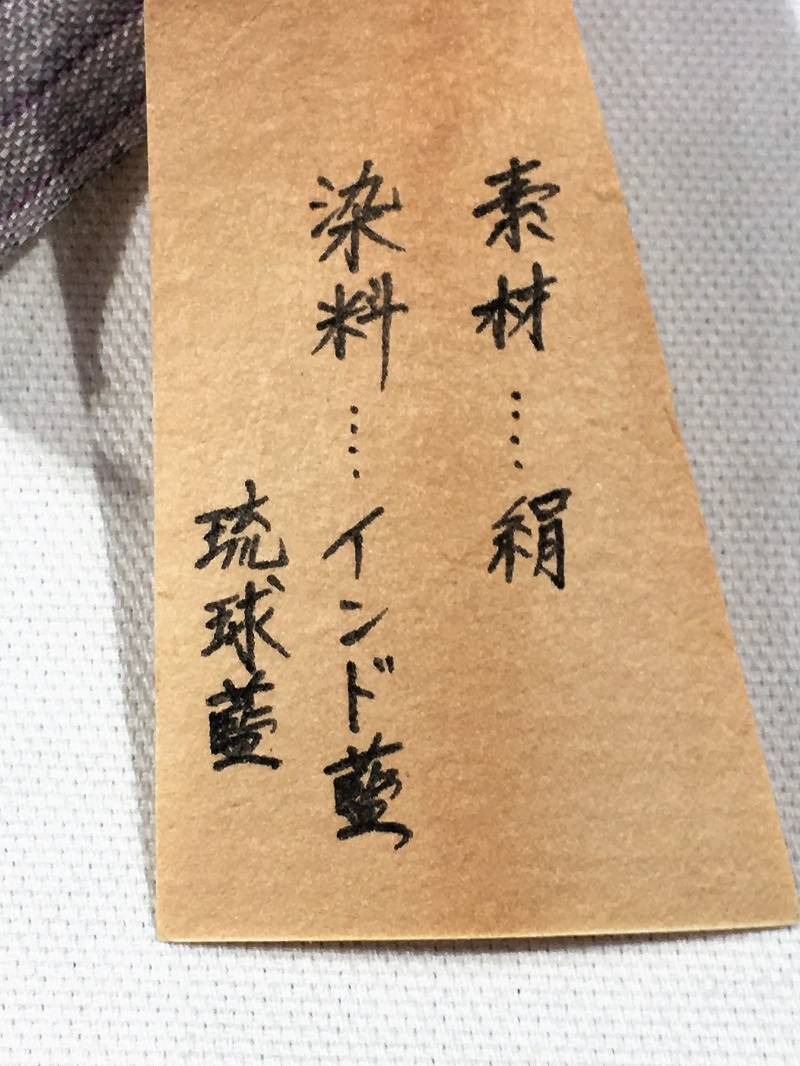 素材…絹
染料…インド藍
琉球藍